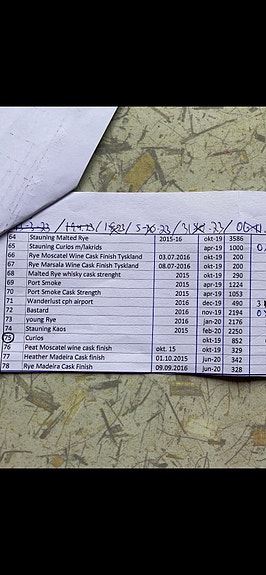 64 Stauning Malted Rye 2015-16 okt-19 3586
65 Stauning Curios m/lakrids apr-19 1000
66 Rye Moscatel Wine Cask Finish Tyskland 03.07.2016 okt-19 200
67 Rye Marsala Wine Cask Finish Tyskland 08.07-2016 okt-19 200
68 Malted Rye whisky cask strenght 2015 okt-19 290
69 Port Smoke 2015 apr-19 1224
70 Port Smoke Cask Strength 2015 apr-19 1053
71 Wanderlust cph airport 2016 dec-19 490
72 Bastard 2016 nov-19 2194
73 young Rye 2016 jan-20 2176
74 Stauning Kaos 2015 feb-20 2250
75 Curios okt-19 852
76 Peat Moscatel wine cask finish okt. 15 okt-19 329
77 Heather Madeira Cask finish 01.10.2015 jun-20 342
78 Rye Madeira Cask Finish 09.09.2016 jun-20 328